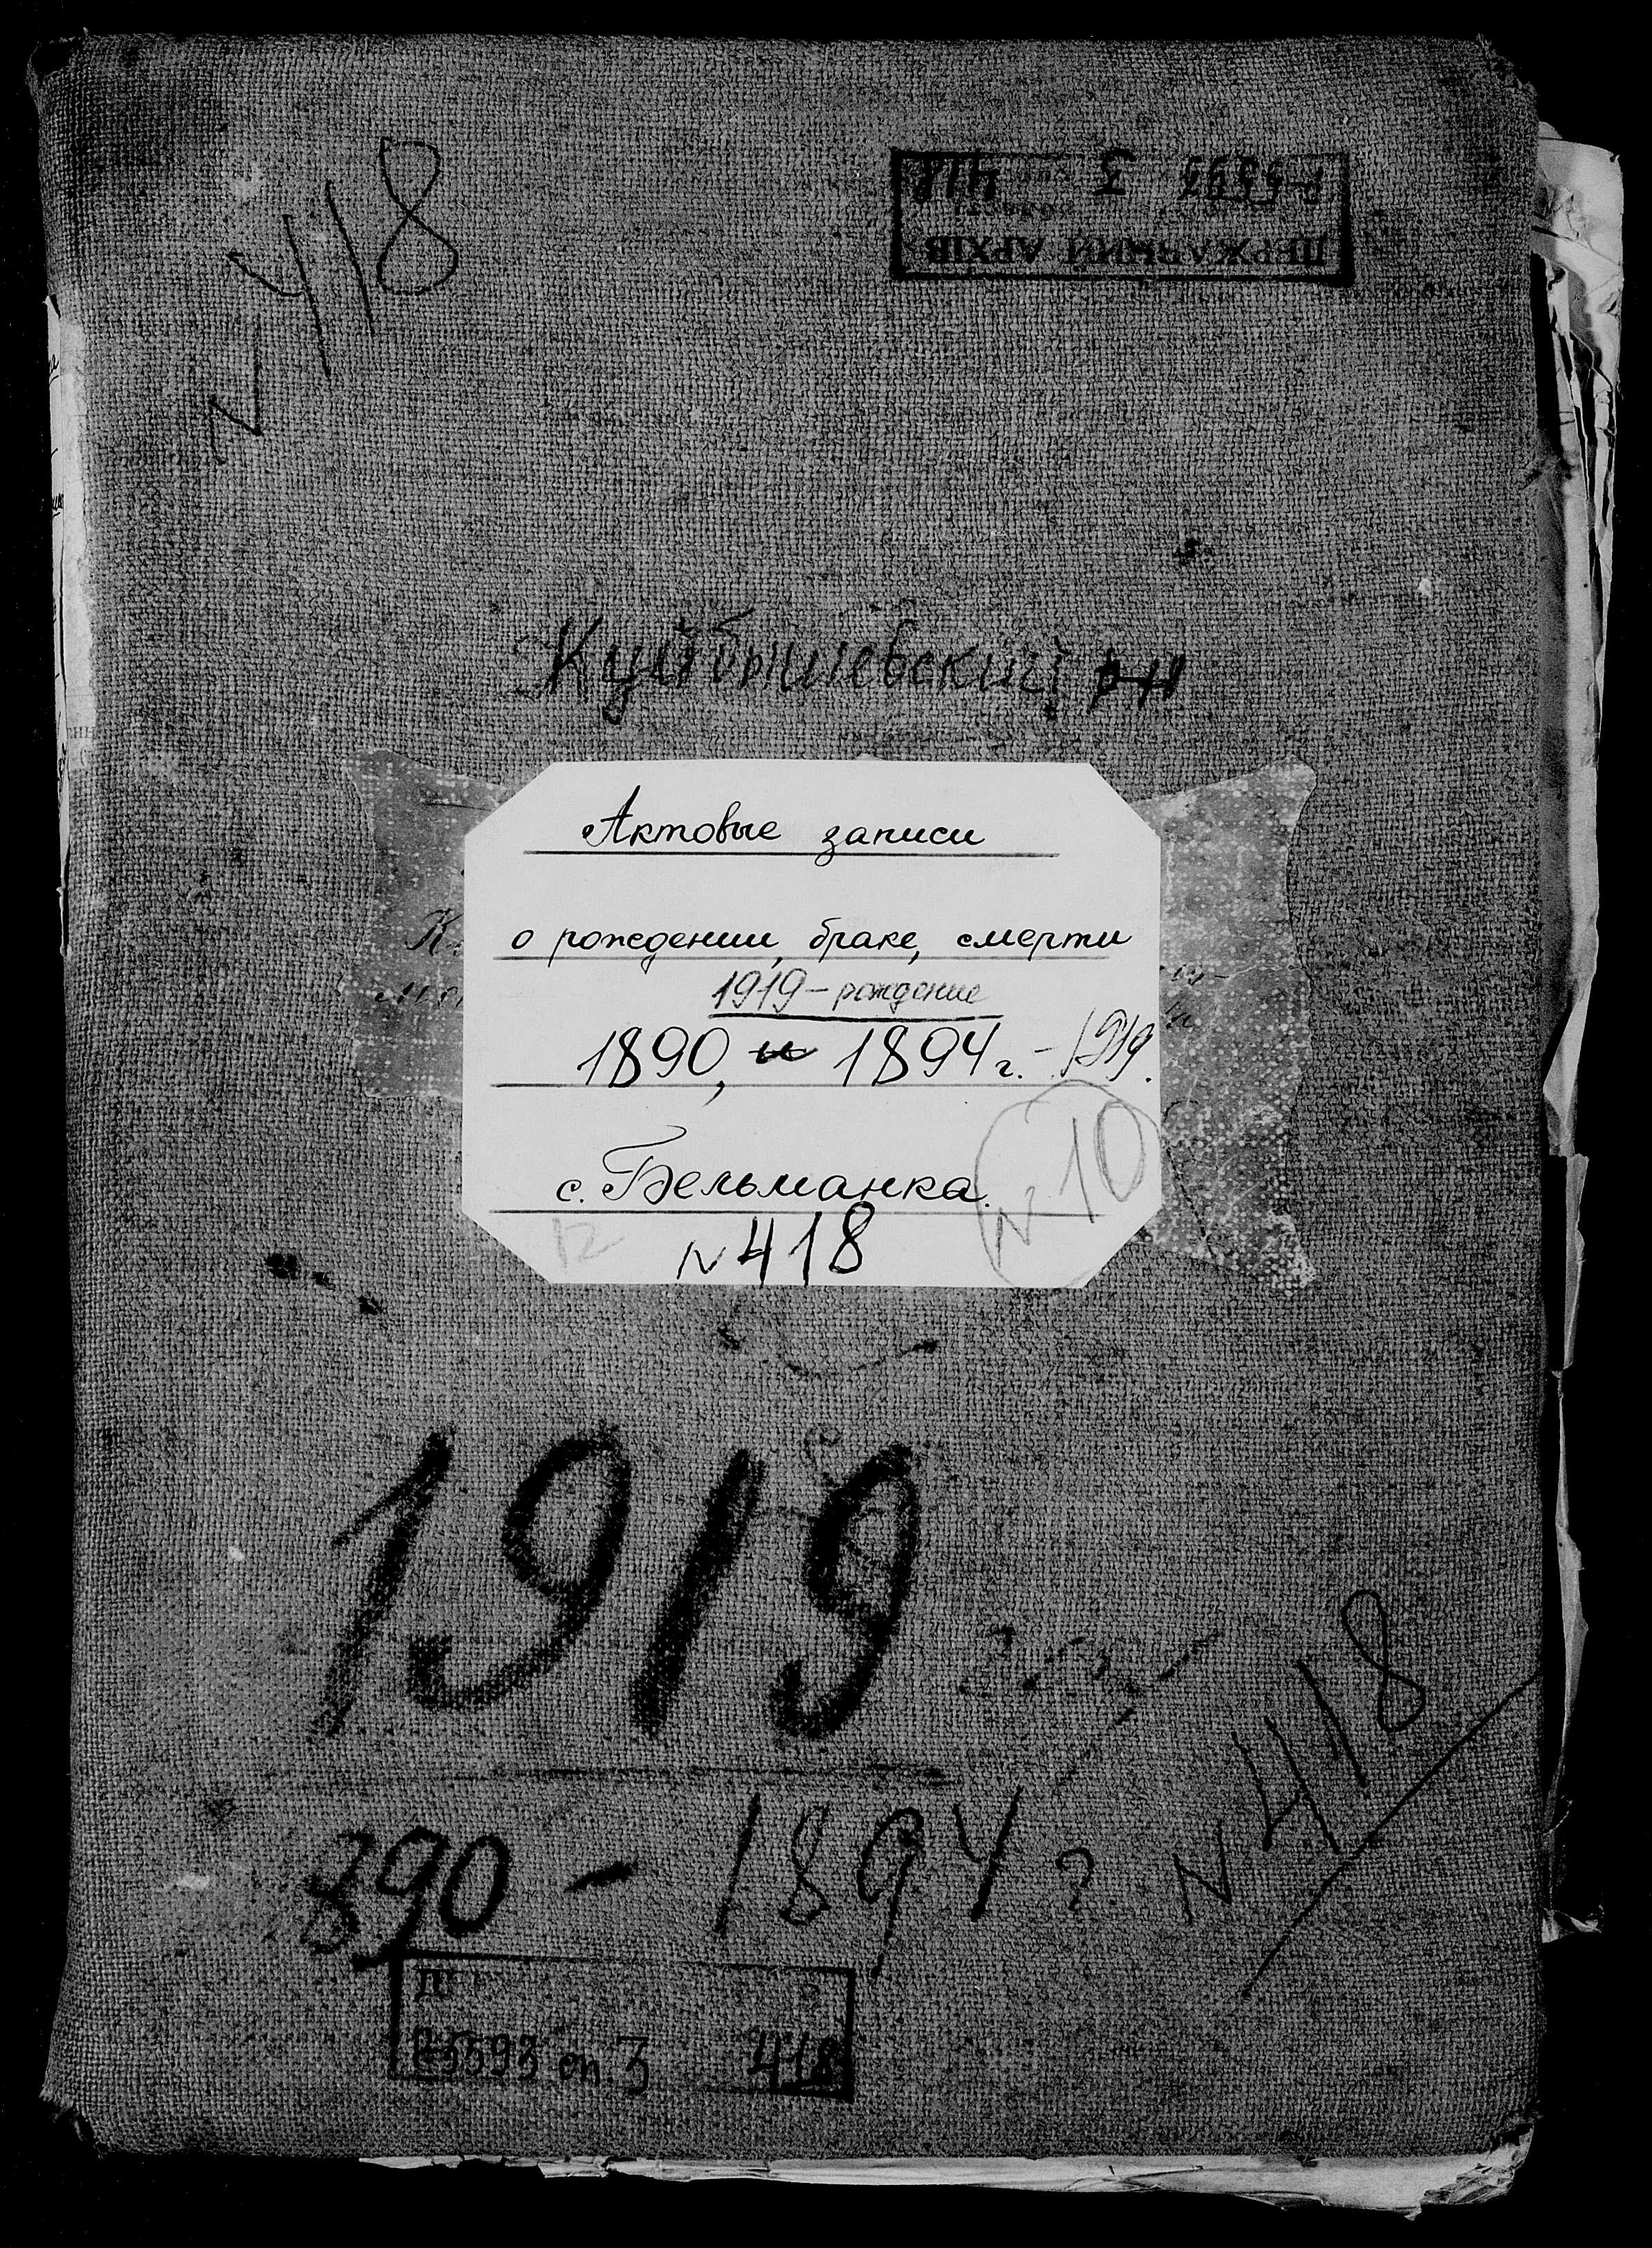 N 418
Р-5593 3 418
ДЕРЖАВНИЙ АРХІВ
Куйбышевский р-н
Актовые записи
о рождении, браке, смерти
1919 – рождение
1890, и 1894 г. – 1919.
с. Бельманка.
N 10
12
N 418
1919
890 – 1894 г.
N 418
Р-5593 оп. 3 418